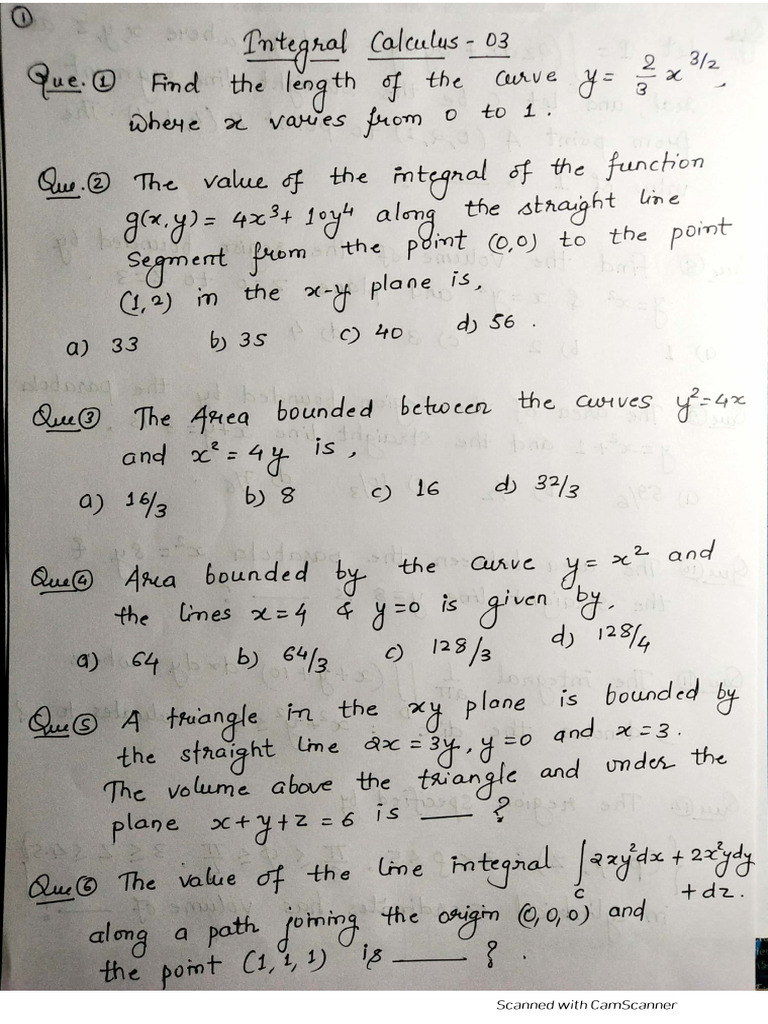 ①
Integral Calculus - 03
Que.① Find the length of the curve y = 2/3 x^3/2,
where x varies from 0 to 1.
Que.② The value of the integral of the function
g(x,y) = 4x³ + 10y⁴ along the straight line
segment from the point (0,0) to the point
(1,2) in the x-y plane is,
a) 33 b) 35 c) 40 d) 56.
Que③ The Area bounded between the curves y²=4x
and x² = 4y is,
a) 16/3 b) 8 c) 16 d) 32/3
Que④ Area bounded by the curve y = x² and
the lines x=4 & y=0 is given by,
a) 64 b) 64/3 c) 128/3 d) 128/4
Que⑤ A triangle in the xy plane is bounded by
the straight line 2x = 3y, y=0 and x=3.
The volume above the triangle and under the
plane x+y+z = 6 is ___ ?
Que⑥ The value of the line integral ∫c 2xy²dx + 2x²ydy
+ dz.
along a path joining the origin (0,0,0) and
the point (1,1,1) is ___ ?.
Scanned with CamScanner